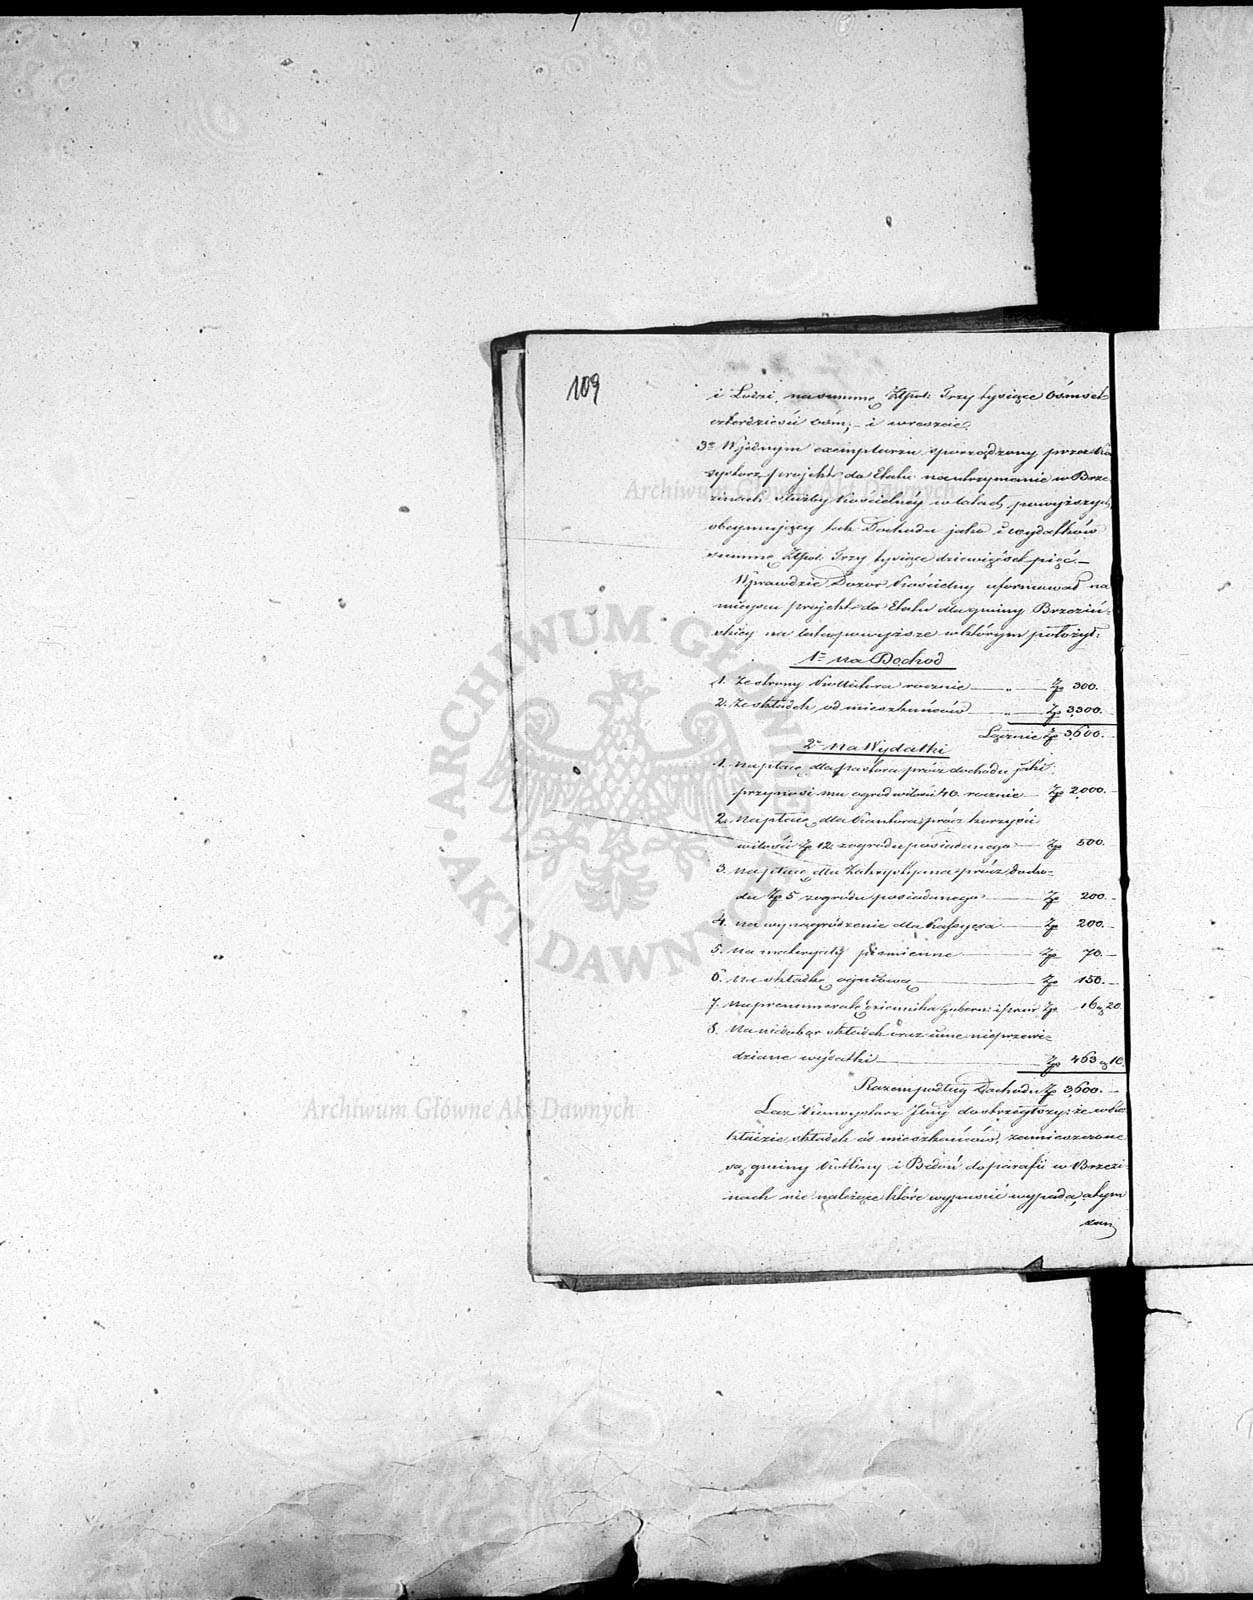 109
i Łodzi, na summę Złpol: Trzy tysiące ośmset
czterdzieści ośm; - i wreszcie.
3e W jednym exemplarzu sporządzony przez Kon
systorz projekt do Etatu na utrzymanie w Brze
zinach służby Kościelnéy w latach powyższych
obeymujący tak Dochodu jako i wydatków
summę Złpol: Trzy tysiące dziewięćset pięć. -
Wprawdzie Dozór Kościelny uformował na
mieyscu projekt do Etatu dla gminy Brzeziń=
skiey na lata powyższe w którym położył:
1e na Dochód
1. Ze strony Kollatora rocznie — „ — Zp 300. -
2. Ze składek od mieszkańców — „ — Zp 3,300. -
Łącznie Zp 3,600. -
2e na Wydatki
1. na płacę dla pastora prócz dochodu jaki
przynosi mu ogród w ilości 40. rocznie — Zp 2,000. -
2. na płacę dla Kantora prócz korzyści
w ilości Zp 12 z ogrodu posiadanego — Zp 500. -
3. na płacę dla Zakrystyana prócz docho=
du Zp 5 z ogrodu posiadanego — Zp 200. -
4. na wynagrodzenie dla Kassyera — Zp 200. -
5. na materyały piśmienne — Zp 70. -
6. na składkę ogniową — Zp 150. -
7. na prenumeratę dziennika Gubern: i praw Zp 16 g 20
8. na niedobór składek oraz inne nieprzewi=
dziane wydatki — Zp 463 g 10.
Razem podług Dochodu Zp 3,600. -
Lecz Konsystorz dostrzegłszy: że w
składek od mieszkańców, zamieszczone
są gminy i Bedoń do parafii w Brzezi
nach nie należące które wypuścić wypada, a tym
Archiwum Główne Akt Dawnych
ARCHIWUM GŁÓWNE AKT DAWNYCH
Archiwum Główne Akt Dawnych